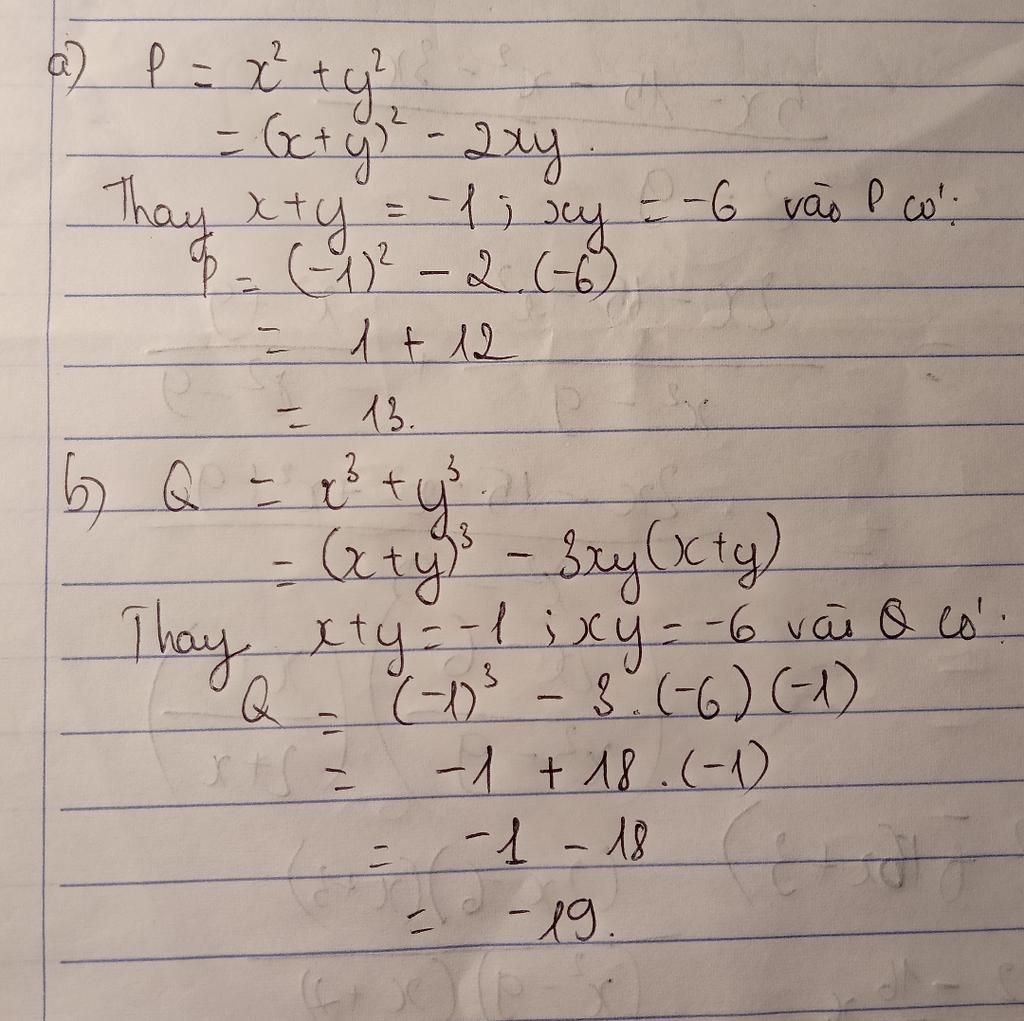 a) P = x² + y²
= (x+y)² - 2xy.
Thay x+y = -1; xy = -6 vào P có:
P = (-1)² - 2.(-6)
= 1 + 12
= 13.
b) Q = x³ + y³.
= (x+y)³ - 3xy(x+y)
Thay x+y = -1; xy = -6 vào Q có:
Q = (-1)³ - 3.(-6)(-1)
= -1 + 18.(-1)
= -1 - 18
= -19.